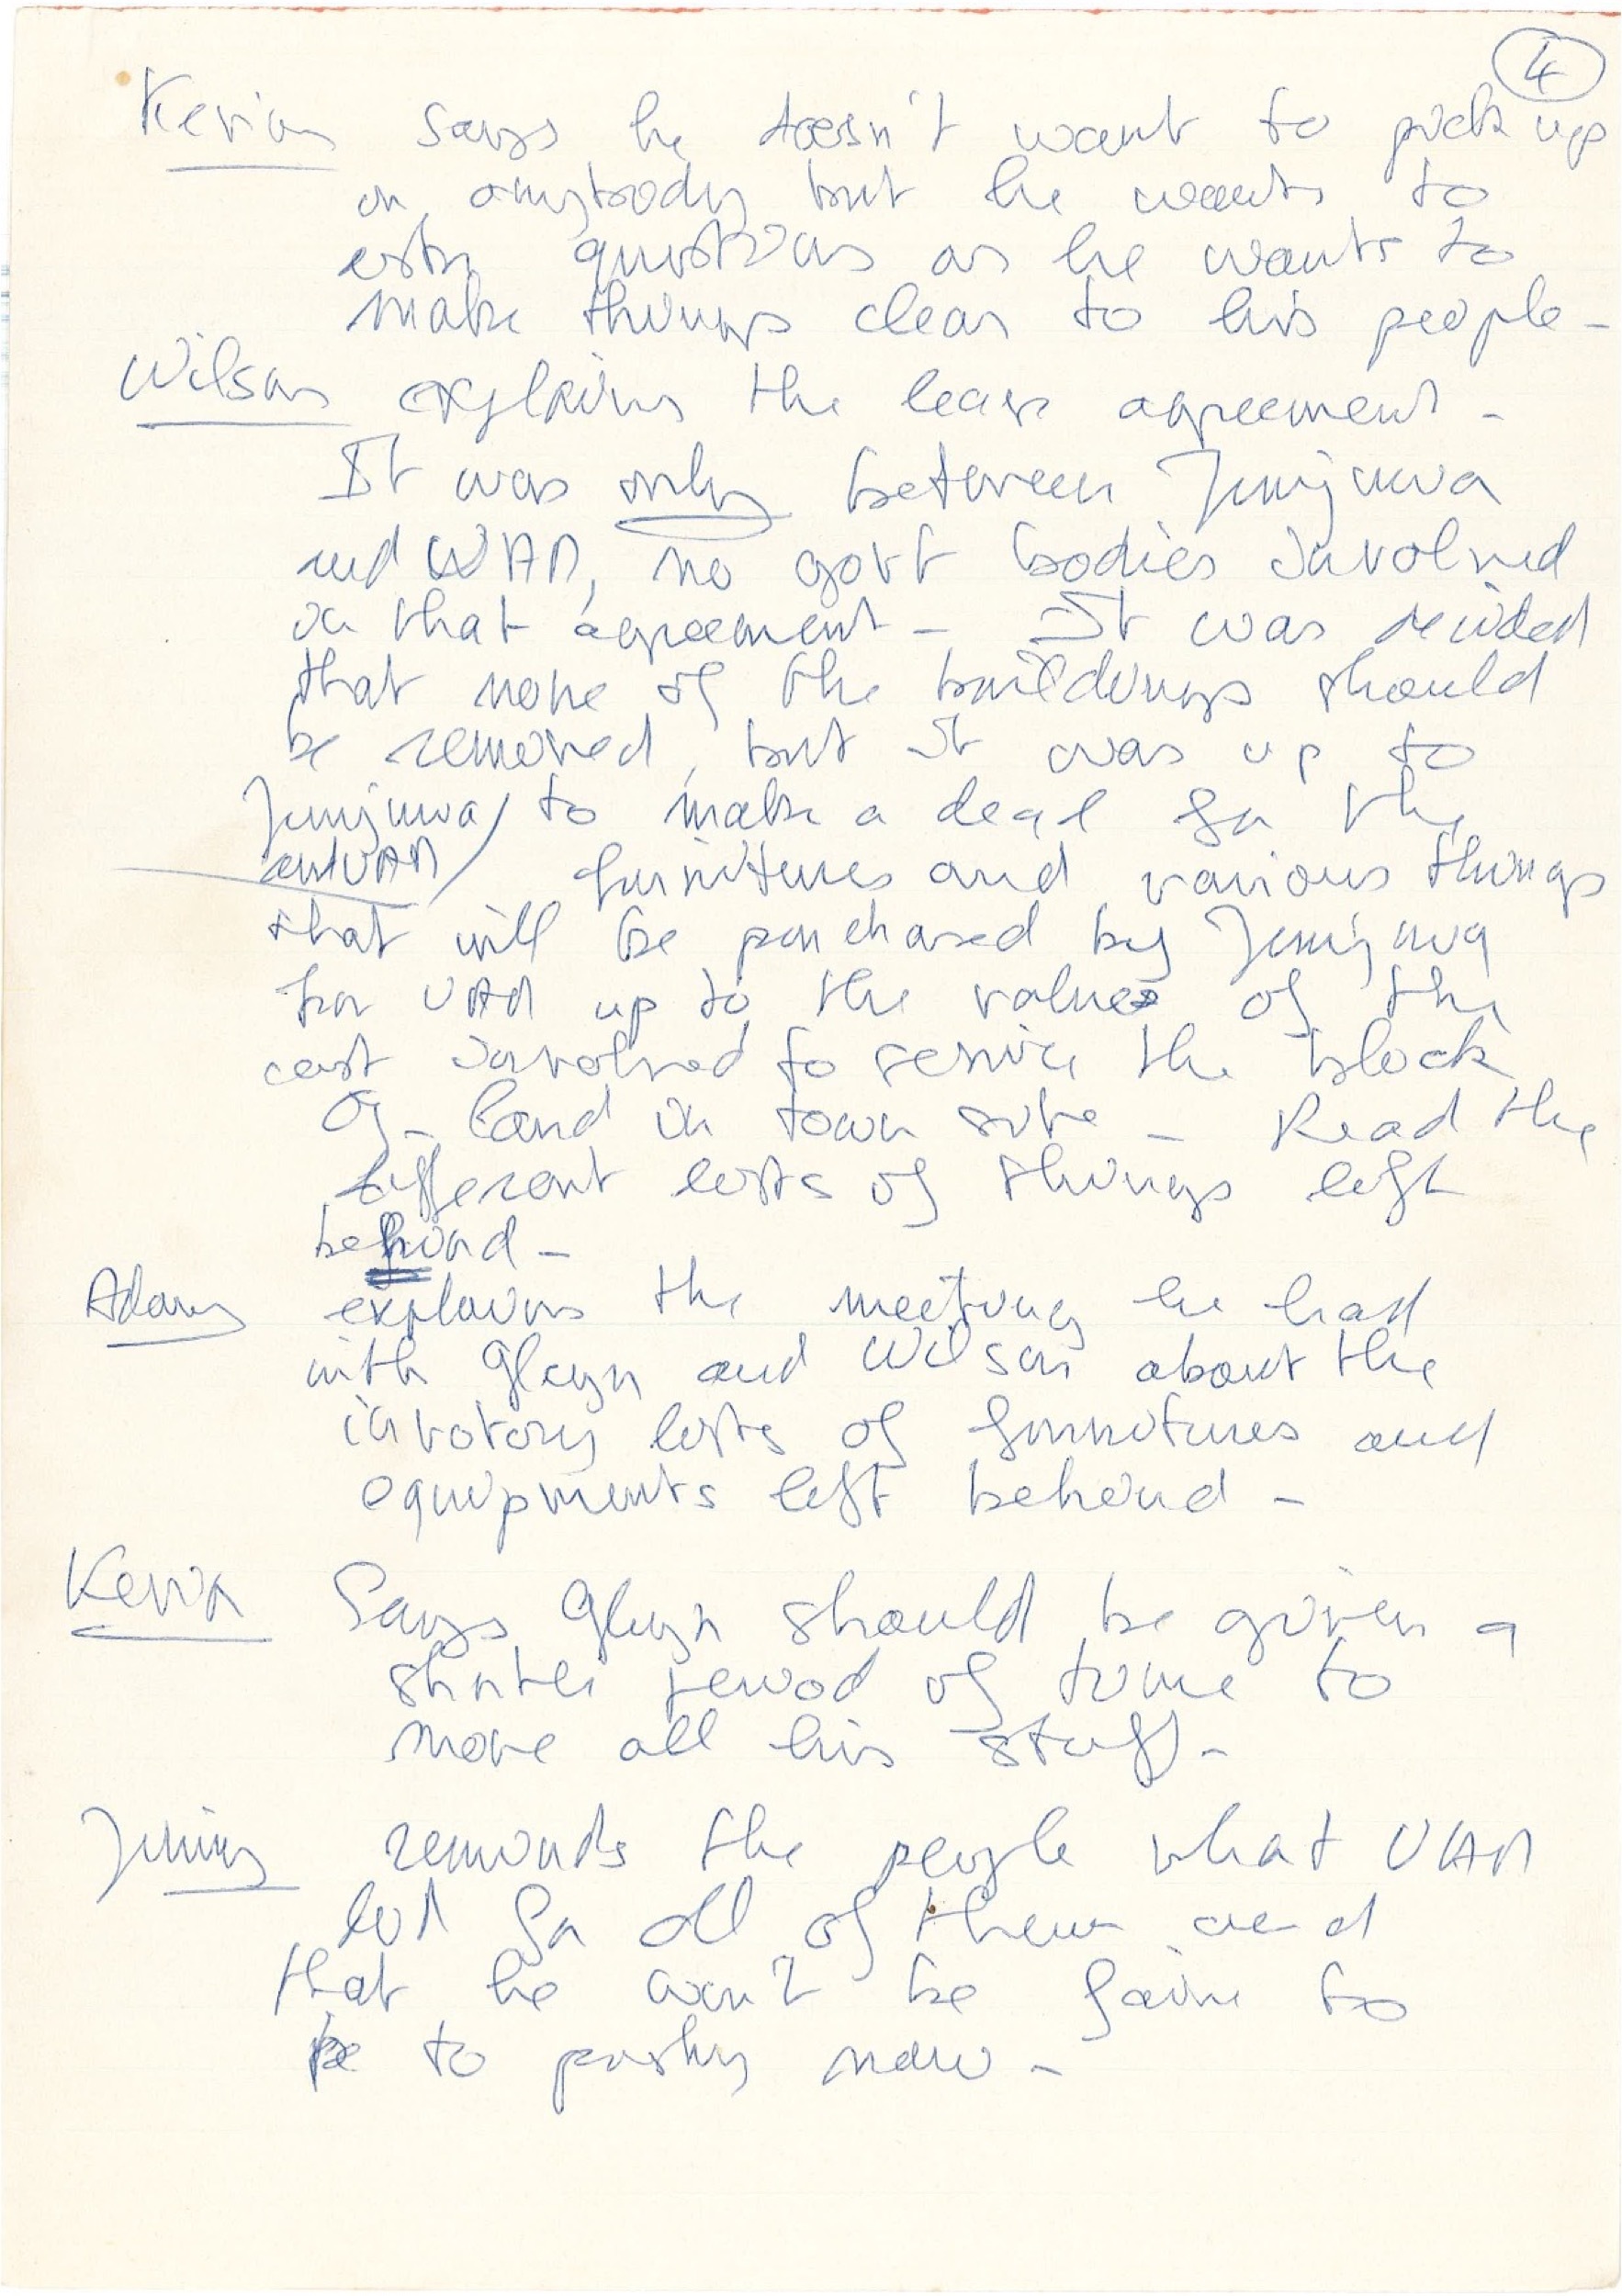 4
Kevin says he doesn't want to pick up
on anybody but he wants to
ask questions as he wants to
make things clear to his people -
Wilson explains the lease agreement -
It was only between Junjuwa
and UAM, no govt bodies involved
in that agreement - It was decided
that none of the buildings should
be removed, but it was up to
Junjuwa / to make a deal for the
and UAM / furnitures and various things
that will be purchased by Junjuwa
for UAM up to the values of the
cost involved to service the block
of land in town site - Read the
different lists of things left
behind -
Adam explains the meeting he had
with Glenn and Wilson about the
invotory lists of furnitures and
equipments left behind -
Kevin Says Glenn should be given a
shorter period of time to
move all his stuff -
Jimmy reminds the people what UAM
did for all of them and
that he won't be to
be to pushy now -